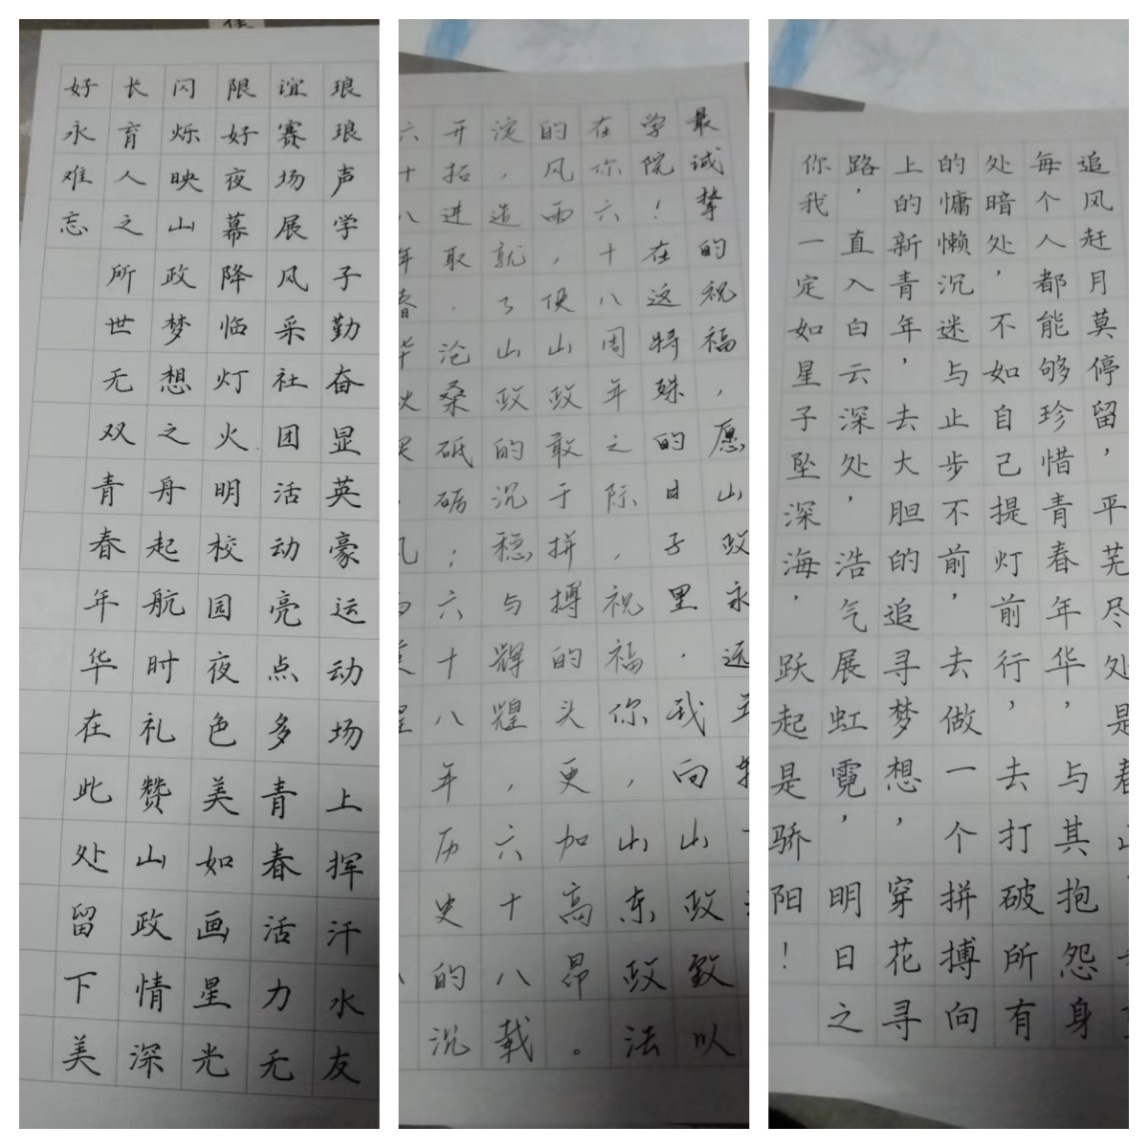 琅琅声学子勤奋显英豪运动场上挥汗水友
谊赛场展风采社团活动亮点多青春活力无
限好夜幕降临灯火明校园夜色美如画星光
闪烁映山政梦想之舟起航时礼赞山政情深
长育人之所世无双青春年华在此处留下美
好永难忘
最诚挚的祝福，愿山政永远
学院！在这特殊的日子里.我向山政致以
在你六十八周年之际，祝福你，山东政法
的风雨，使山政敢于拼搏的头更加高昂。
淀，造就了山政的沉稳与辉煌，六十八载
开拓进取.沧桑砥砺；六十八年历史的沉
六十八年春华
追风赶月莫停留，平芜尽处是春
每个人都能够珍惜青春年华，与其抱怨身
处暗处，不如自己提灯前行，去打破所有
的慵懒沉迷与止步不前，去做一个拼搏向
上的新青年，去大胆的追寻梦想，穿花寻
路，直入白云深处，浩气展虹霓，明日之
你我一定如星子坠深海，跃起是骄阳！